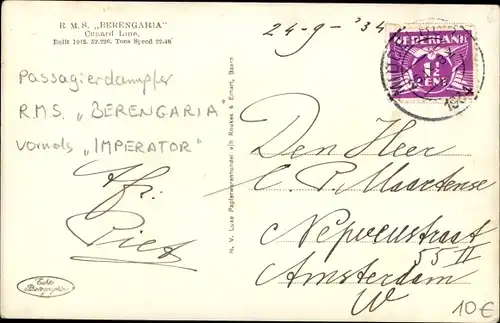 R. M. S. „BERENGARIA"
Cunard Line,
Built 1912. 52.226. Tons Speed 22-48
24-9-'34
NEDERLAND
1½
CENT
1934
Passagierdampfer
RMS. „BERENGARIA"
vormals „IMPERATOR"
N. V. Luxe Papierwarenhandel v/h Roukes & Erhart, Baarn
Den Heer
C. P. Maartense
Nepveustraat
55 II
Amsterdam
W
Afz.
Piet
Echte
10€